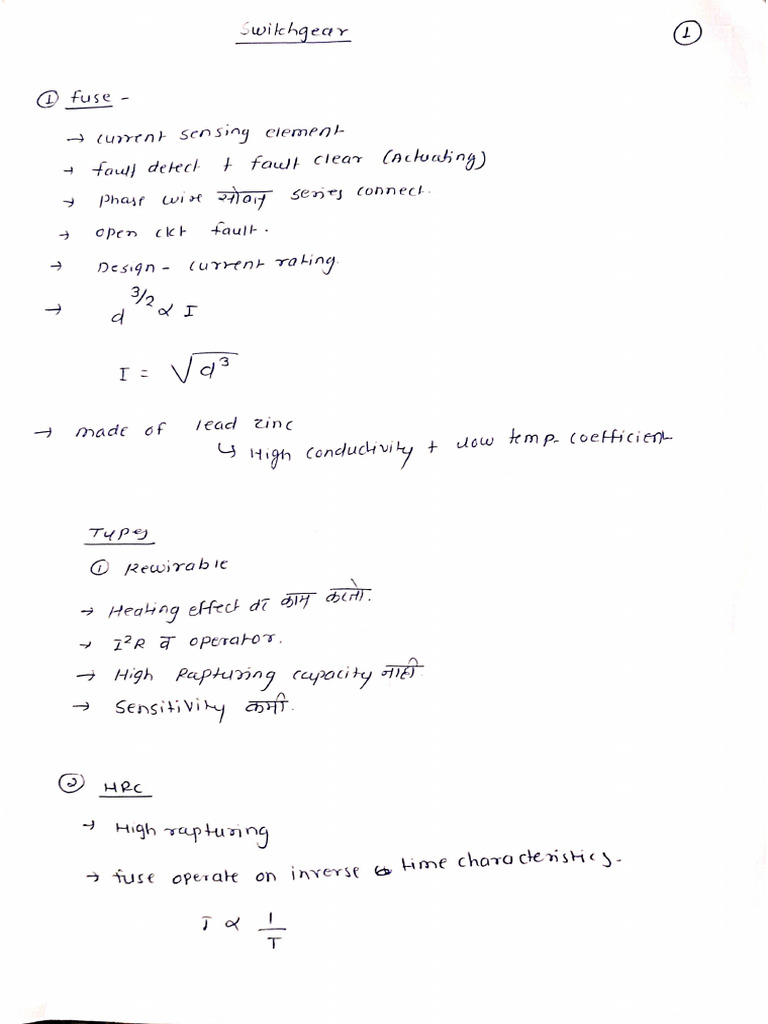 Switchgear
1
① fuse -
→ current sensing element
→ fault detect + fault clear (Actuating)
→ phase wire सोबत series connect.
→ open ckt fault.
→ Design - current rating.
→ d^3/2 ∝ I
I = √d³
→ made of lead zinc
↳ High conductivity + low temp. coefficient
Types
① Rewirable
→ Heating effect वर काम करतो.
→ I²R व operator.
→ High Rapturing capacity नाही.
→ Sensitivity कमी.
② HRC
→ High rapturing
→ fuse operate on inverse time characteristics.
I ∝ 1/T